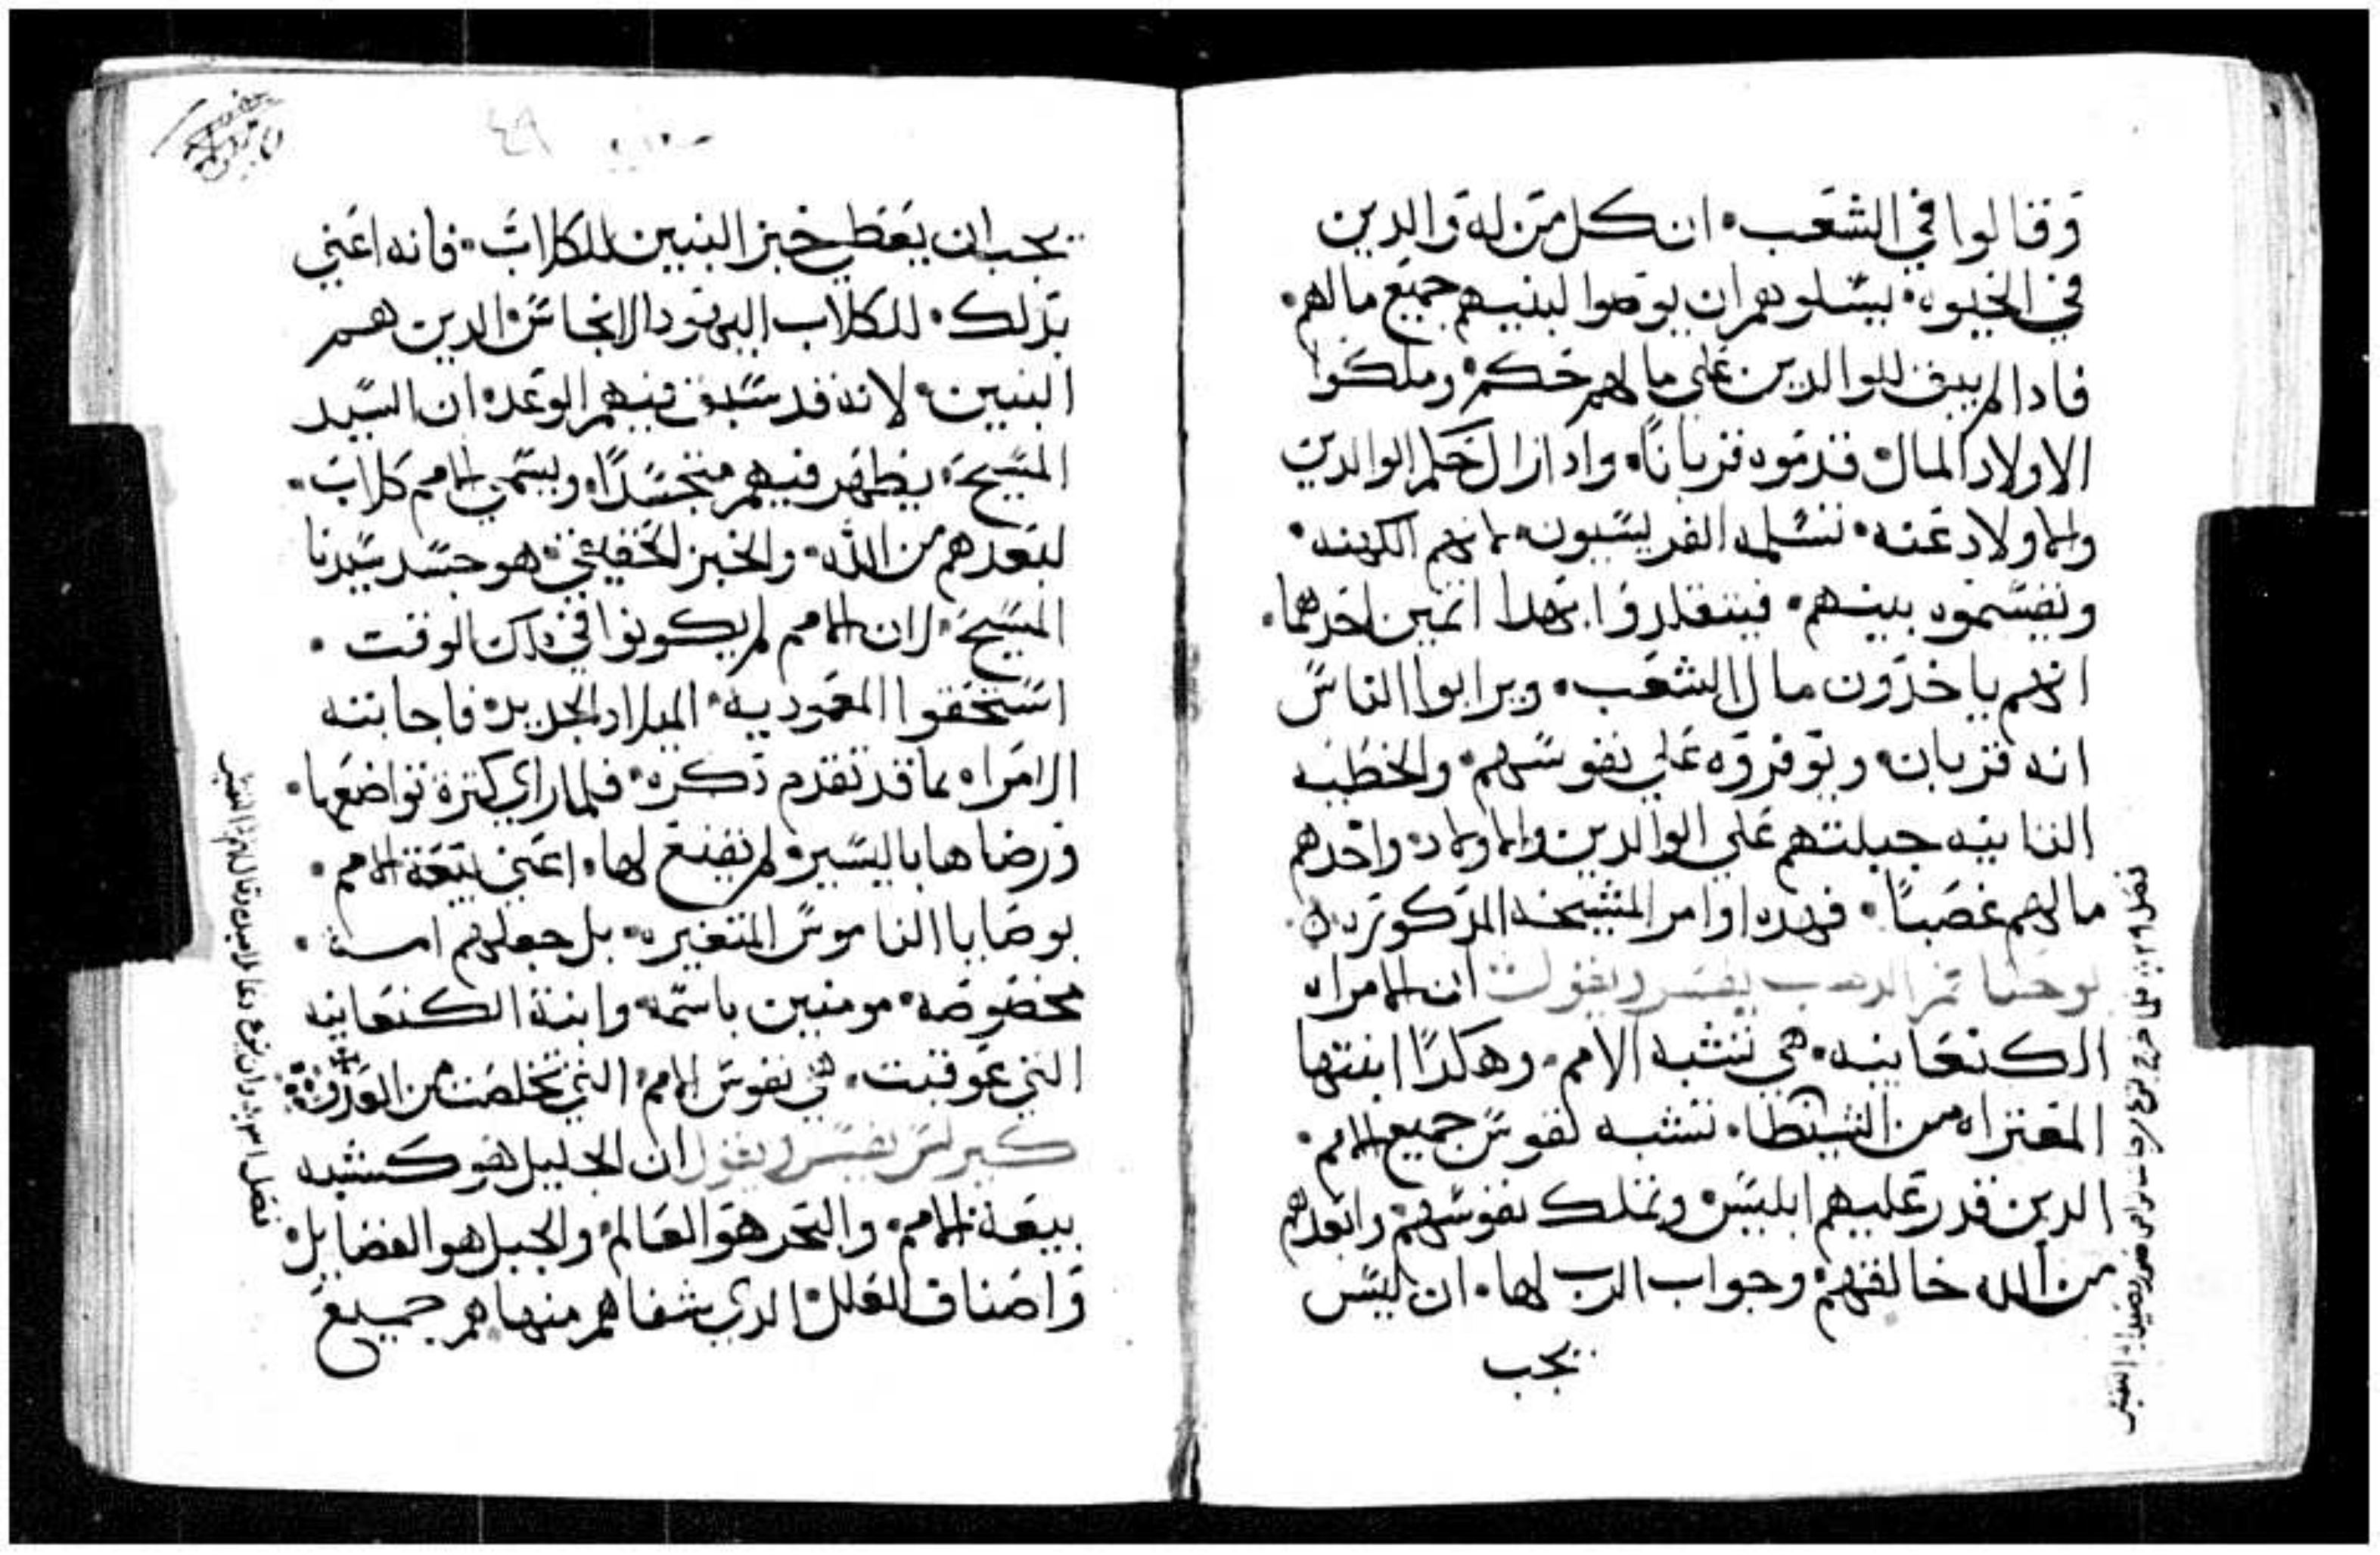 وقالوا في الشعب· ان كل من له والدين
في الحيوه· يسلوهم ان يوصوا لبنيهم جميع مالهم·
فادا لم يبق للوالدين علي مالهم حكم· وملكوا
الاولاد المال· قدموه قربانًا· وادا زال حكم الوالدين
والاولاد عنه· تسلمه الفريسيون· لانهم الكهنه·
ونقسموه بينهم· فيتقلدوا بهدا اثمين احدهما·
انهم ياخدون مال الشعب· ويرابوا الناس
انه قربان· ويوفروه علي نفوسهم· والخطيه
التانيه حيلتهم علي الوالدين والاولاد· واخدهم
مالهم غصبًا· فهده اوامر المشيخه المدكوره
يوحنا فم الدهب يفسر ويقول ان الامراه
الكنعانيه· هي تشبه الامم· وهكدا ابنتها
المعتراه من الشيطان· تشبه نفوس جميع الامم·
الدين قدر عليهم ابليس· وتملك نفوسهم· وابعدهم
من الله خالقهم· وجواب الرب لها· ان ليس
يجب
يجب ان يعطي خبز البنين للكلاب· فانه اعني
بدلك· للكلاب اليهود الانجاس· الدين هم
البنين· لانه قد سبق فيهم الوعد· ان السيد
المسيح· يظهر فيهم متجسدًا· ويسمي الامم كلاب·
لبعدهم من الله· والخبز الحقيقي· هو جسد سيدنا
المسيح· لان الامم لم يكونوا في داك الوقت·
استحقوا المعموديه· الميلاد الجديد· فاجابته
الامراه بما قد تقدم دكره· فلما راي كترة تواضعها·
ورضاها باليسير· لم يقنع لها· اعني بيعة الامم·
بوصايا الناموس المتغيره· بل جعلهم امه·
مخصوصه· مومنين باسمه· وابنة الكنعانيه
التي عوفيت· هي نفوس الامم· التي تخلصت من العدو
كيرلس يفسر ويقول ان الجليل هو كشبه
بيعة الامم· والبحر هو العالم· والجبل هو الفضايل·
واصناف العلل· الدي شفاهم منها هم جميع